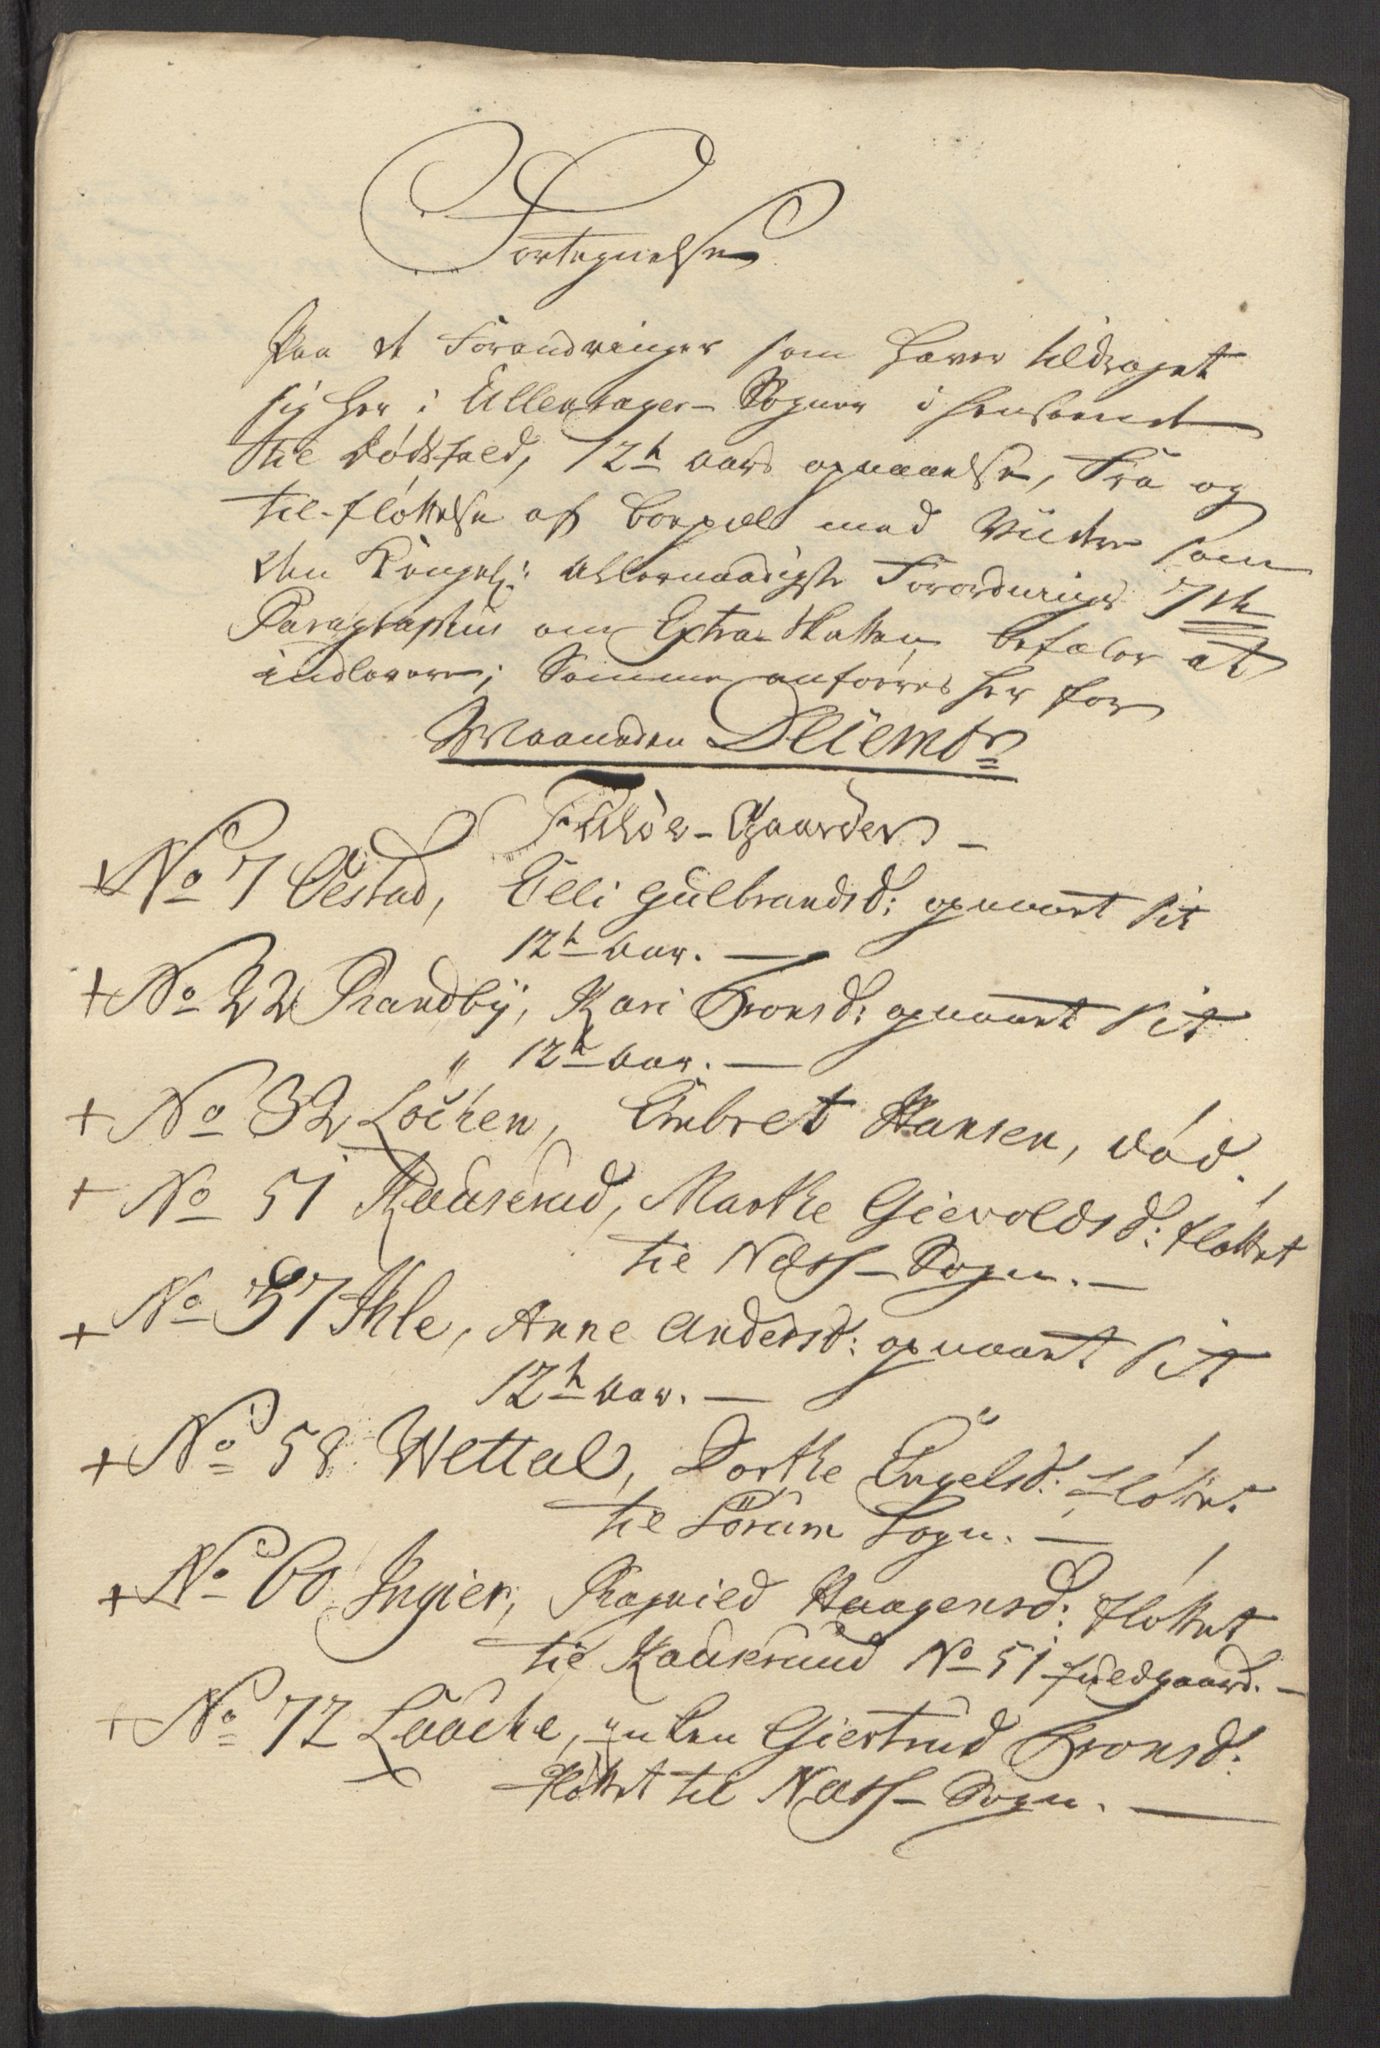 Fortegnelse
Paa de Forandringer som haver tildraget
sig her i Ullensager Sogner i henseende
til dødsfald, 12te aars opnaaelse, Fra og
til-fløttelse af Copul med Viidere som
den Kongel: Allernaadigste Forordnings 7de
Paragraphus om Extra Skatten befaler at
indlevere; Samme anføres her for
Maaneden Decembr
Fulde-Gaarder
+ No 7 Oestad, Elli Gulbrandsd: opnaaet sit
12te Aar.
+ No 22 Randby, Kari Tronsd: opnaaet sit
" 12te Aar.
+ No 32 Løcken, Embret Hansen, død.
+ No 51 Kauserud, Marthe Gievoldsd: fløttet
til Næss-Sogn.
+ No 57 Ihle, Anne Andersd: opnaaet sit
12te Aar.
+ No 58 Wettal, Dorthe Engelsd: fløttet
til Sørum Sogn.
+ No 60 Ingier, Ragnild Haagensd: fløttet
til Kauserud No 51 fuldgaard.
+ No 72 Laache, enken Giertrud Tronsd:
fløttet til Næss-Sogn.